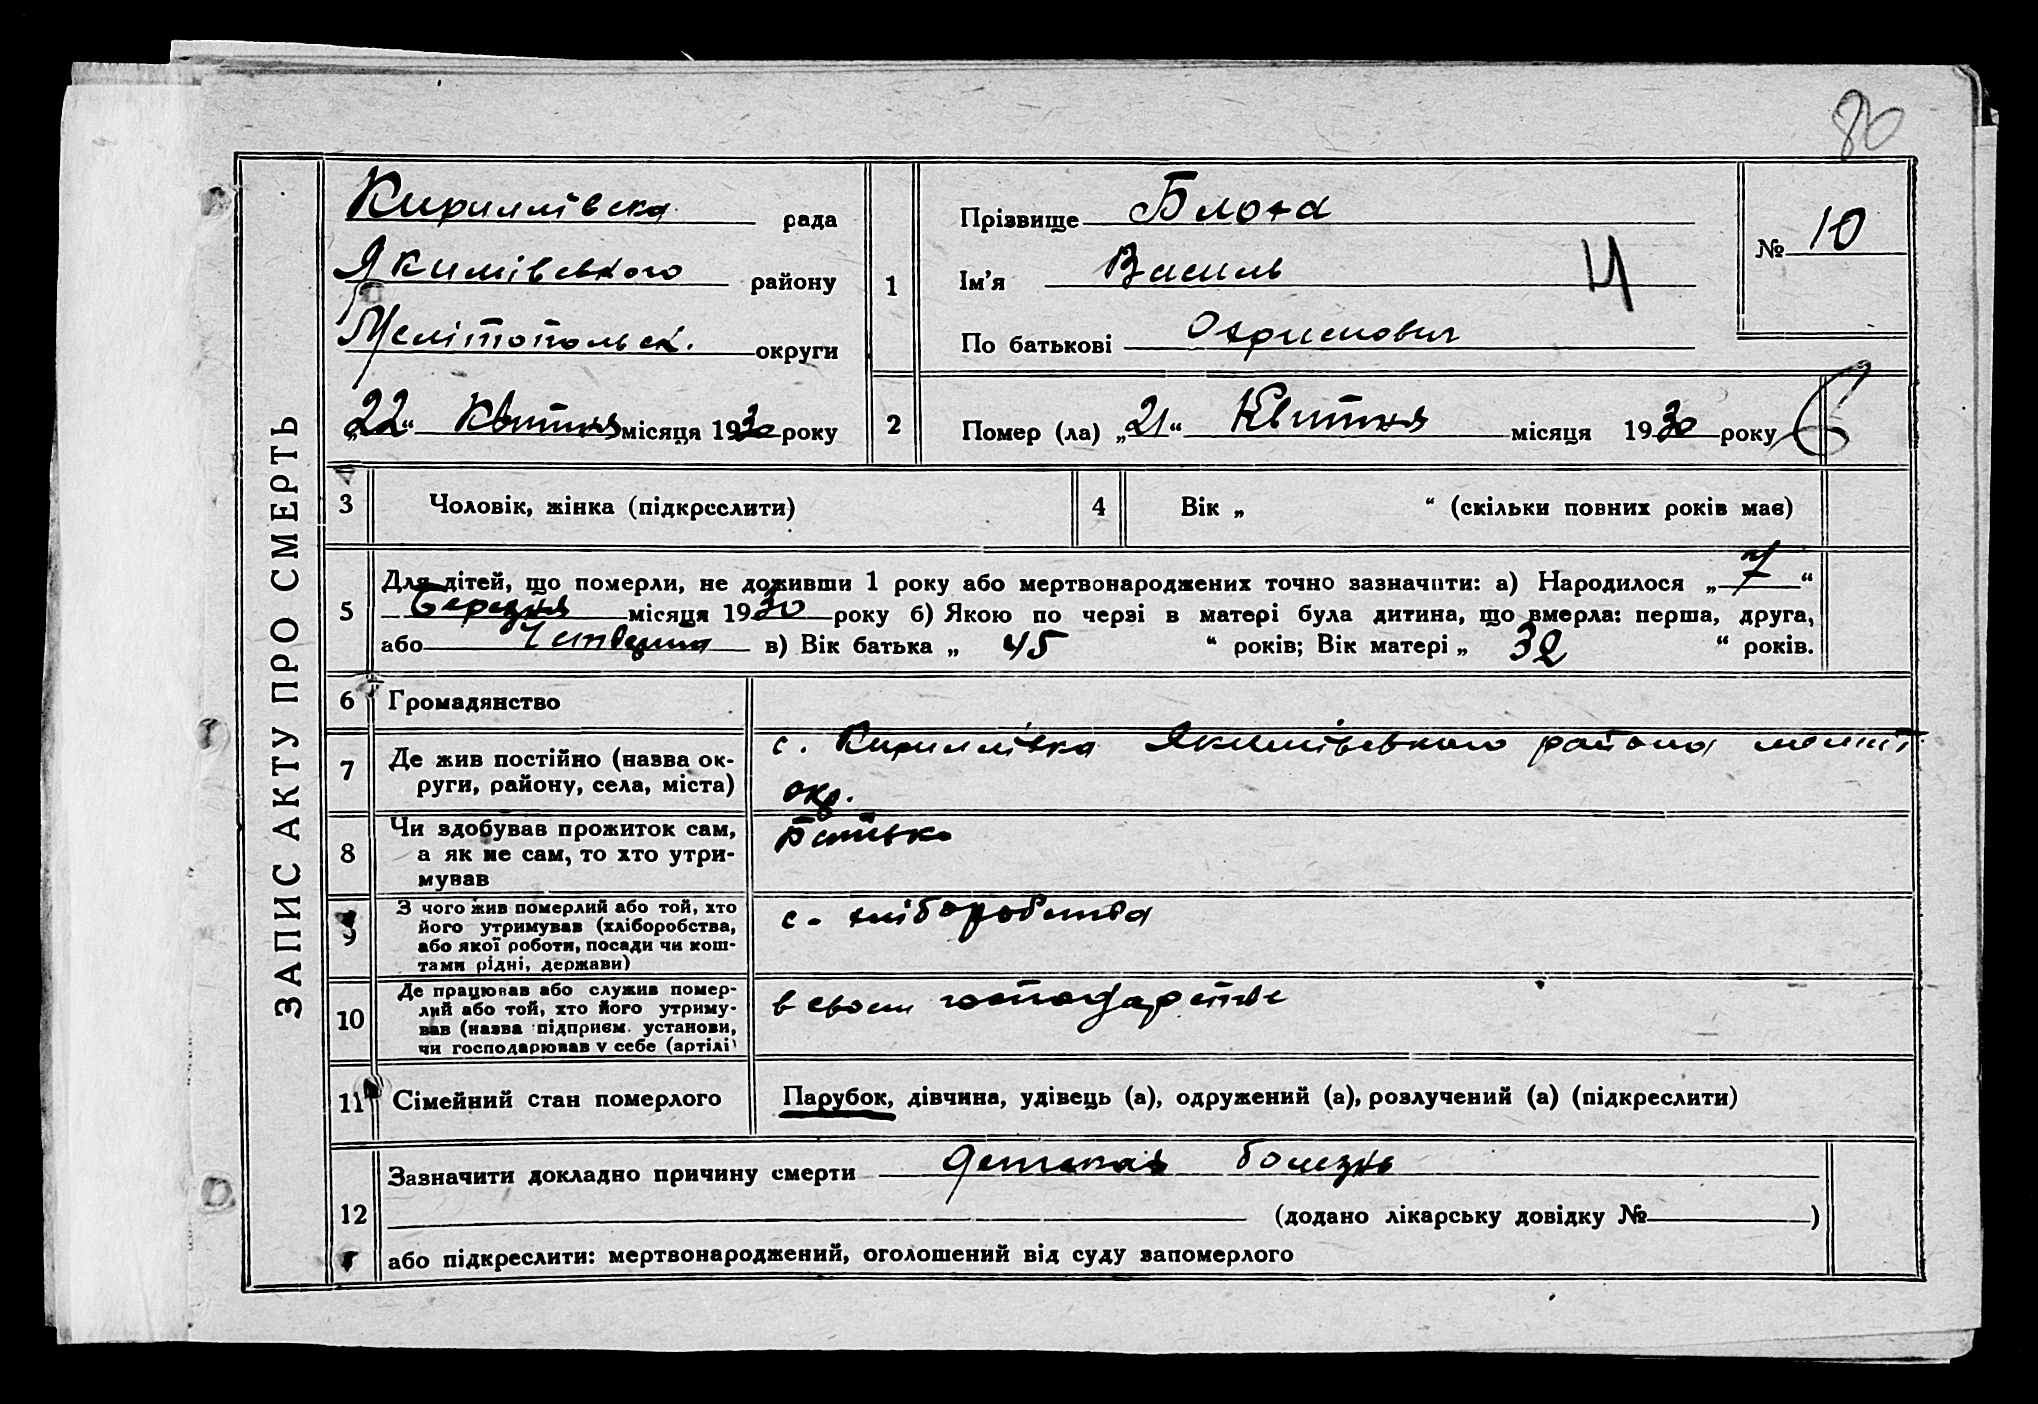 80
ЗАПИС АКТУ ПРО СМЕРТЬ
Кириллівска рада
Якимівського району
Мелітопольск. округи
„22“ Квітня місяця 1930 року
1
Прізвище Блоха
Ім'я Василь Ч
По батькові
№ 10
2 Помер (ла) „21“ Квітня місяця 1930 року
3 Чоловік, жінка (підкреслити)
4 Вік „ “ (скільки повних років має)
5 Для дітей, що померли, не доживши 1 року або мертвонароджених точно зазначити: а) Народилося „7“
Березня місяця 1930 року б) Якою по черзі в матері була дитина, що вмерла: перша, друга,
або Четверта в) Вік батька „ 45 “ років; Вік матері „ 32 “ років.
6 Громадянство
7 Де жив постійно (назва ок-
руги, району, села, міста)
с. Кириллівка Якимівського района меліт
окр.
8 Чи здобував прожиток сам,
а як не сам, то хто утри-
мував
Батько
9 З чого жив померлий або той, хто
його утримував (хліборобства,
або якої роботи, посади чи кош-
тами рідні, держави)
с. хліборобства
10 Де працював або служив помер-
лий або той, хто його утриму-
вав (назва підприєм. установи,
чи господарював у себе (артілі)
в своем господарстве
11 Сімейний стан померлого
Парубок, дівчина, удівець (а), одружений (а), розлучений (а) (підкреслити)
12 Зазначити докладно причину смерти детская болезнь
(додано лікарську довідку № )
або підкреслити: мертвонароджений, оголошений від суду запомерлого